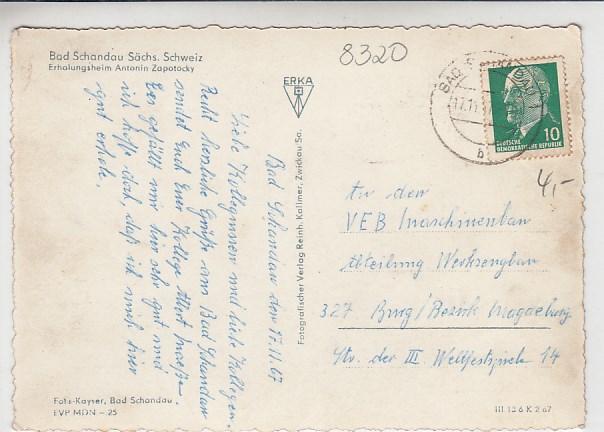 Bad Schandau Sächs. Schweiz
Erholungsheim Antonin Zapotocky
8320
ERKA
BAD SCHANDAU
17.11
b
10
DEUTSCHE
DEMOKRATISCHE REPUBLIK
4,-
Bad Schandau den 17.11.67
Liebe Kolleginnen und liebe Kollegen.
Recht herzliche Grüße aus Bad Schandau
sendet Euch Euer Kollege Albert
Es gefällt mir hier sehr gut und
ich hoffe doch, daß ich mich hier
gut erhole.
Fotografischer Verlag Reinh. Kallmer, Zwickau Sa.
An den
VEB Maschinenbau
Abteilung Werkzeugbau
327 Burg/Bezirk Magdeburg
Str. der III. Weltfestspiele 14
Foto-Kayser, Bad Schandau
EVP MDN -25
III 13 6 K 2 67